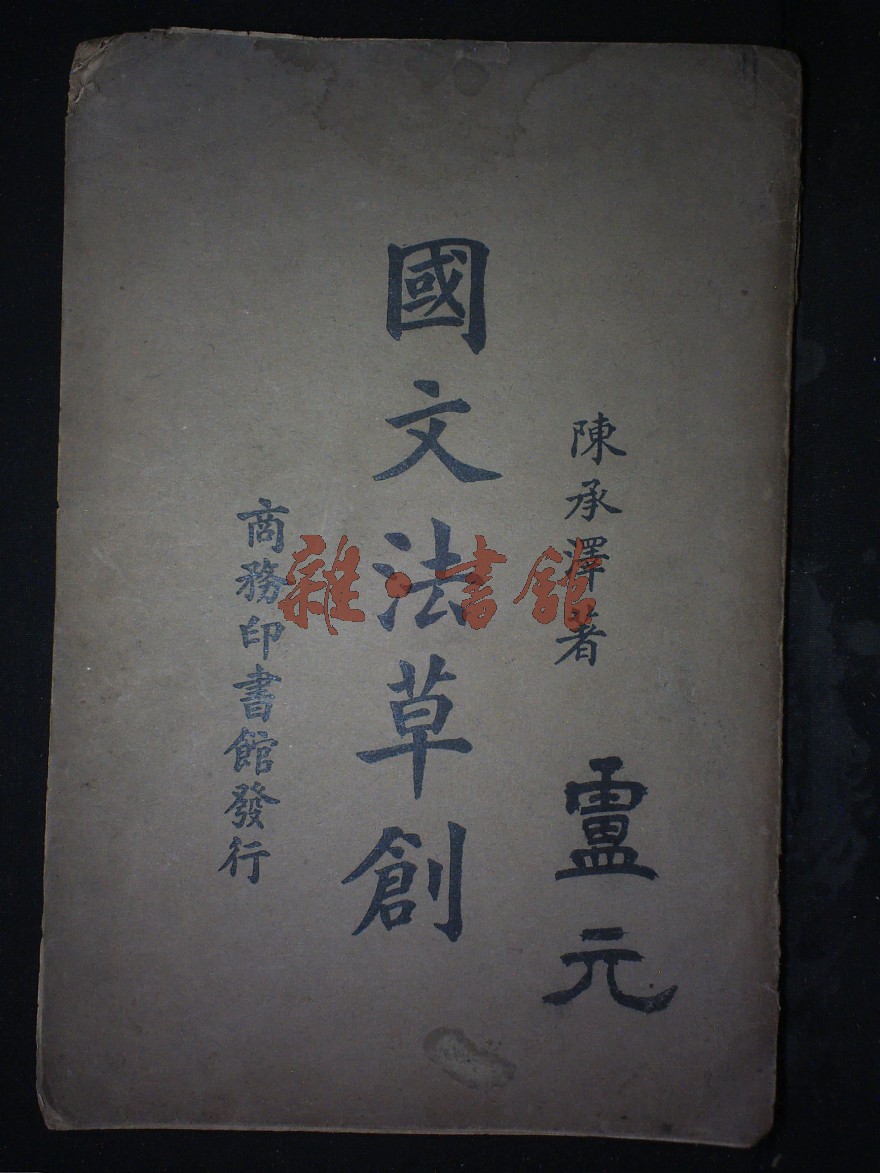 陳承澤著
盧元
國文法草創
商務印書館發行
雜·書館